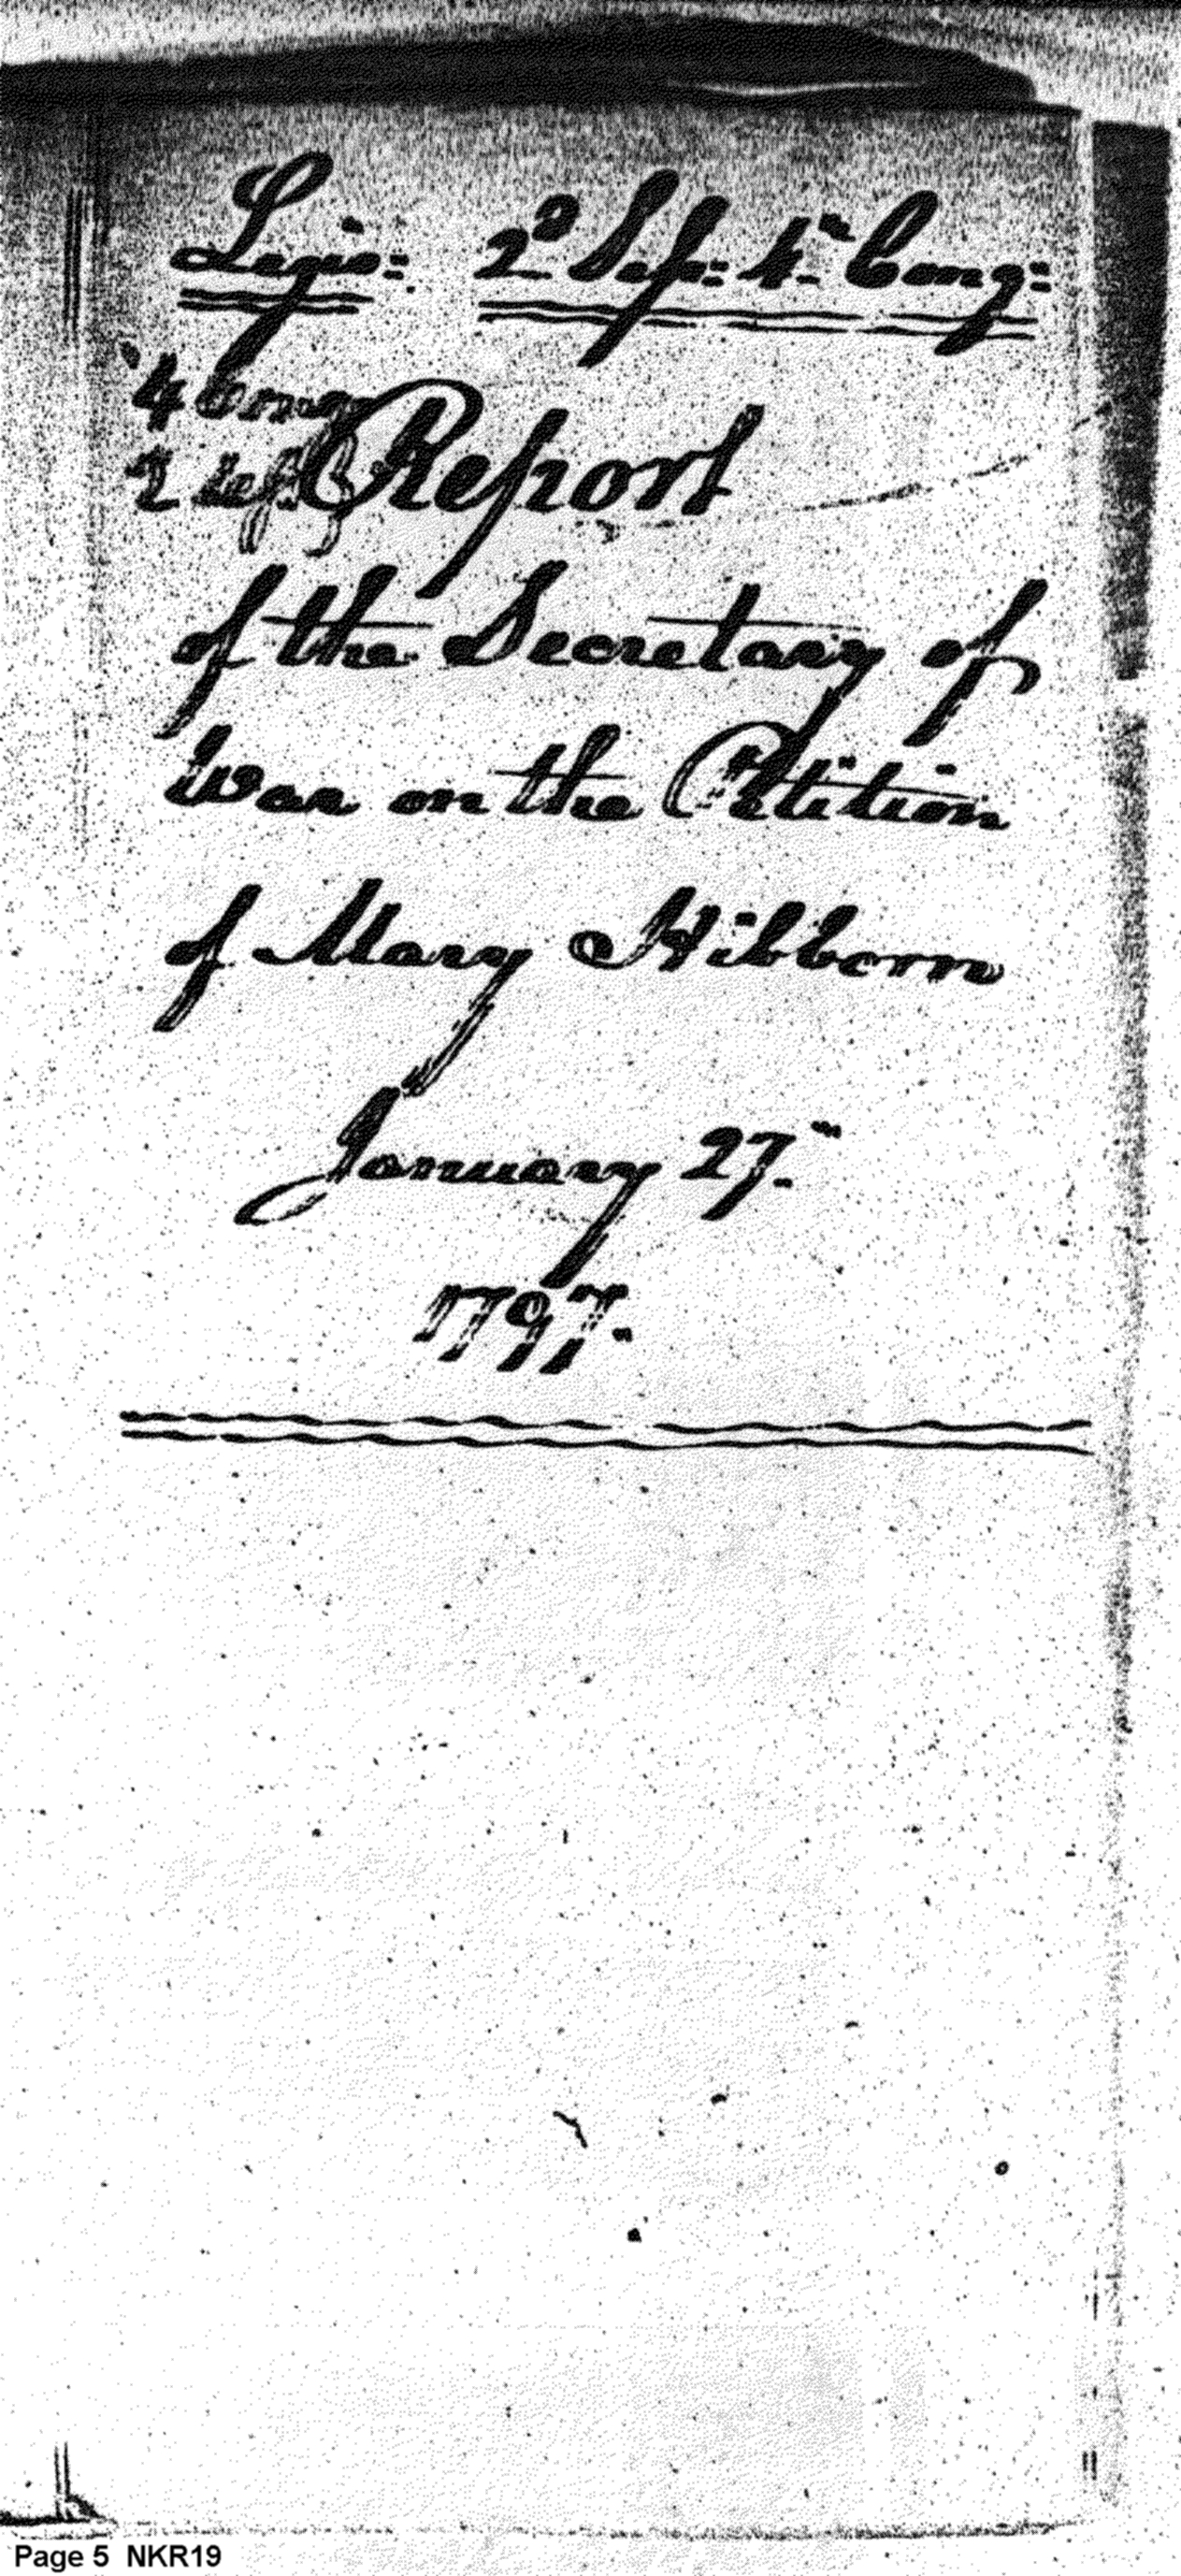 Legis: 2d Sess: 4th Cong:
4 Cong
2 Sess
Report
of the Secretary of
War on the Petition
of Mary Hibborn
January 27th
1797.
Page 5 NKR19